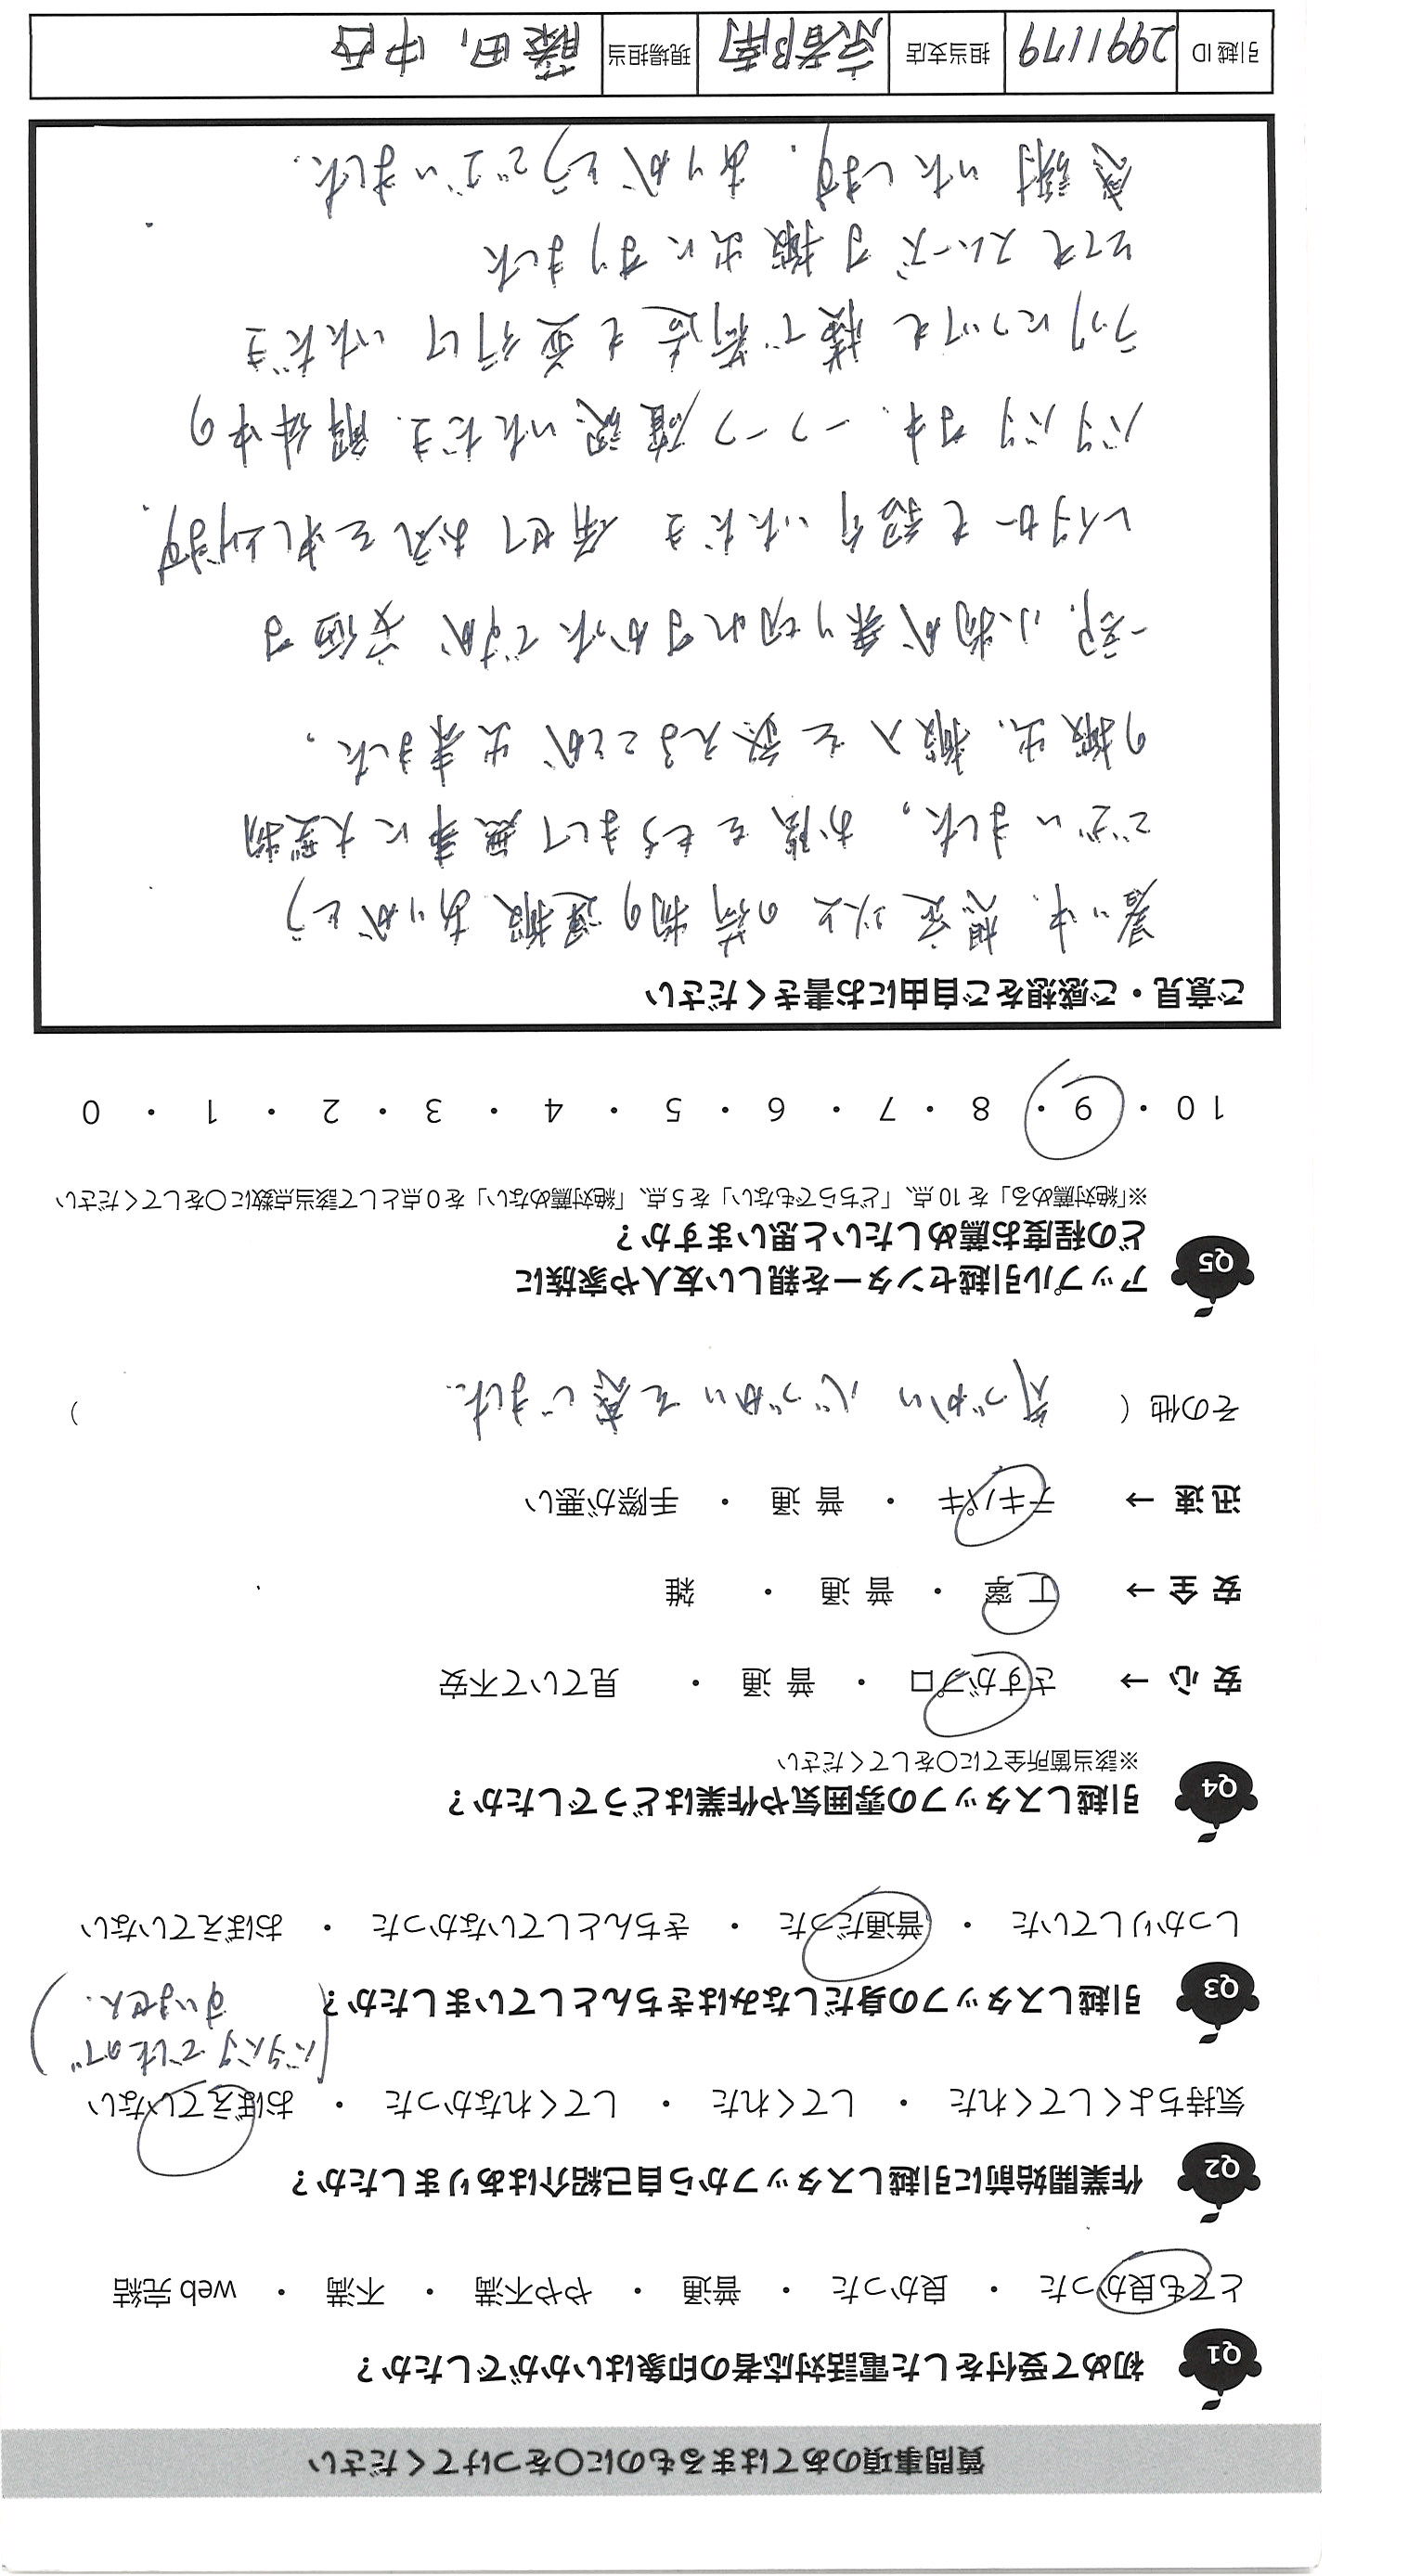 質問事項のあてはまるものに〇をつけてください
Q1 初めて受付をした電話対応者の印象はいかがでしたか？
とても良かった ・ 良かった ・ 普通 ・ やや不満 ・ 不満 ・ web 完結
Q2 作業開始前に引越しスタッフから自己紹介はありましたか？
気持ちよくしてくれた ・ してくれた ・ してくれなかった ・ おぼえていない
(バタバタでしたので
すいません.)
Q3 引越しスタッフの身だしなみはきちんとしていましたか？
しっかりしていた ・ 普通だった ・ きちんとしていなかった ・ おぼえていない
Q4 引越しスタッフの雰囲気や作業はどうでしたか？
※該当箇所全てに〇をしてください
安 心 → さすがプロ ・ 普 通 ・ 見ていて不安
安 全 → 丁 寧 ・ 普 通 ・ 雑
迅 速 → テキパキ ・ 普 通 ・ 手際が悪い
その他 ( 気づかい 心づかいを感じました. )
Q5 アップル引越センターを親しい友人や家族に
どの程度お薦めしたいと思いますか？
※「絶対薦める」を 10 点、「どちらでもない」を 5 点、「絶対薦めない」を 0 点として該当点数に〇をしてください
10 ・ 9 ・ 8 ・ 7 ・ 6 ・ 5 ・ 4 ・ 3 ・ 2 ・ 1 ・ 0
ご意見・ご感想をご自由にお書きください
暑い中、想定以上の荷物の運搬ありがとう
ございました。お陰をもちまして無事に大型物
の搬出、搬入を終えることが出来ました。
一部、小物が乗り切れなかったですが 安価な
レンタカーも紹介いただき 併せてお礼を申し上げます.
バタバタな中、一つ一つ確認いただき、解体中の
ラックについても 横で荷造も並行していただき
とてもスムーズな搬出になりました
感謝いたします. ありがとうございました.
引越 ID 2991179 担当支店 京都南 現場担当 藤田, 中西